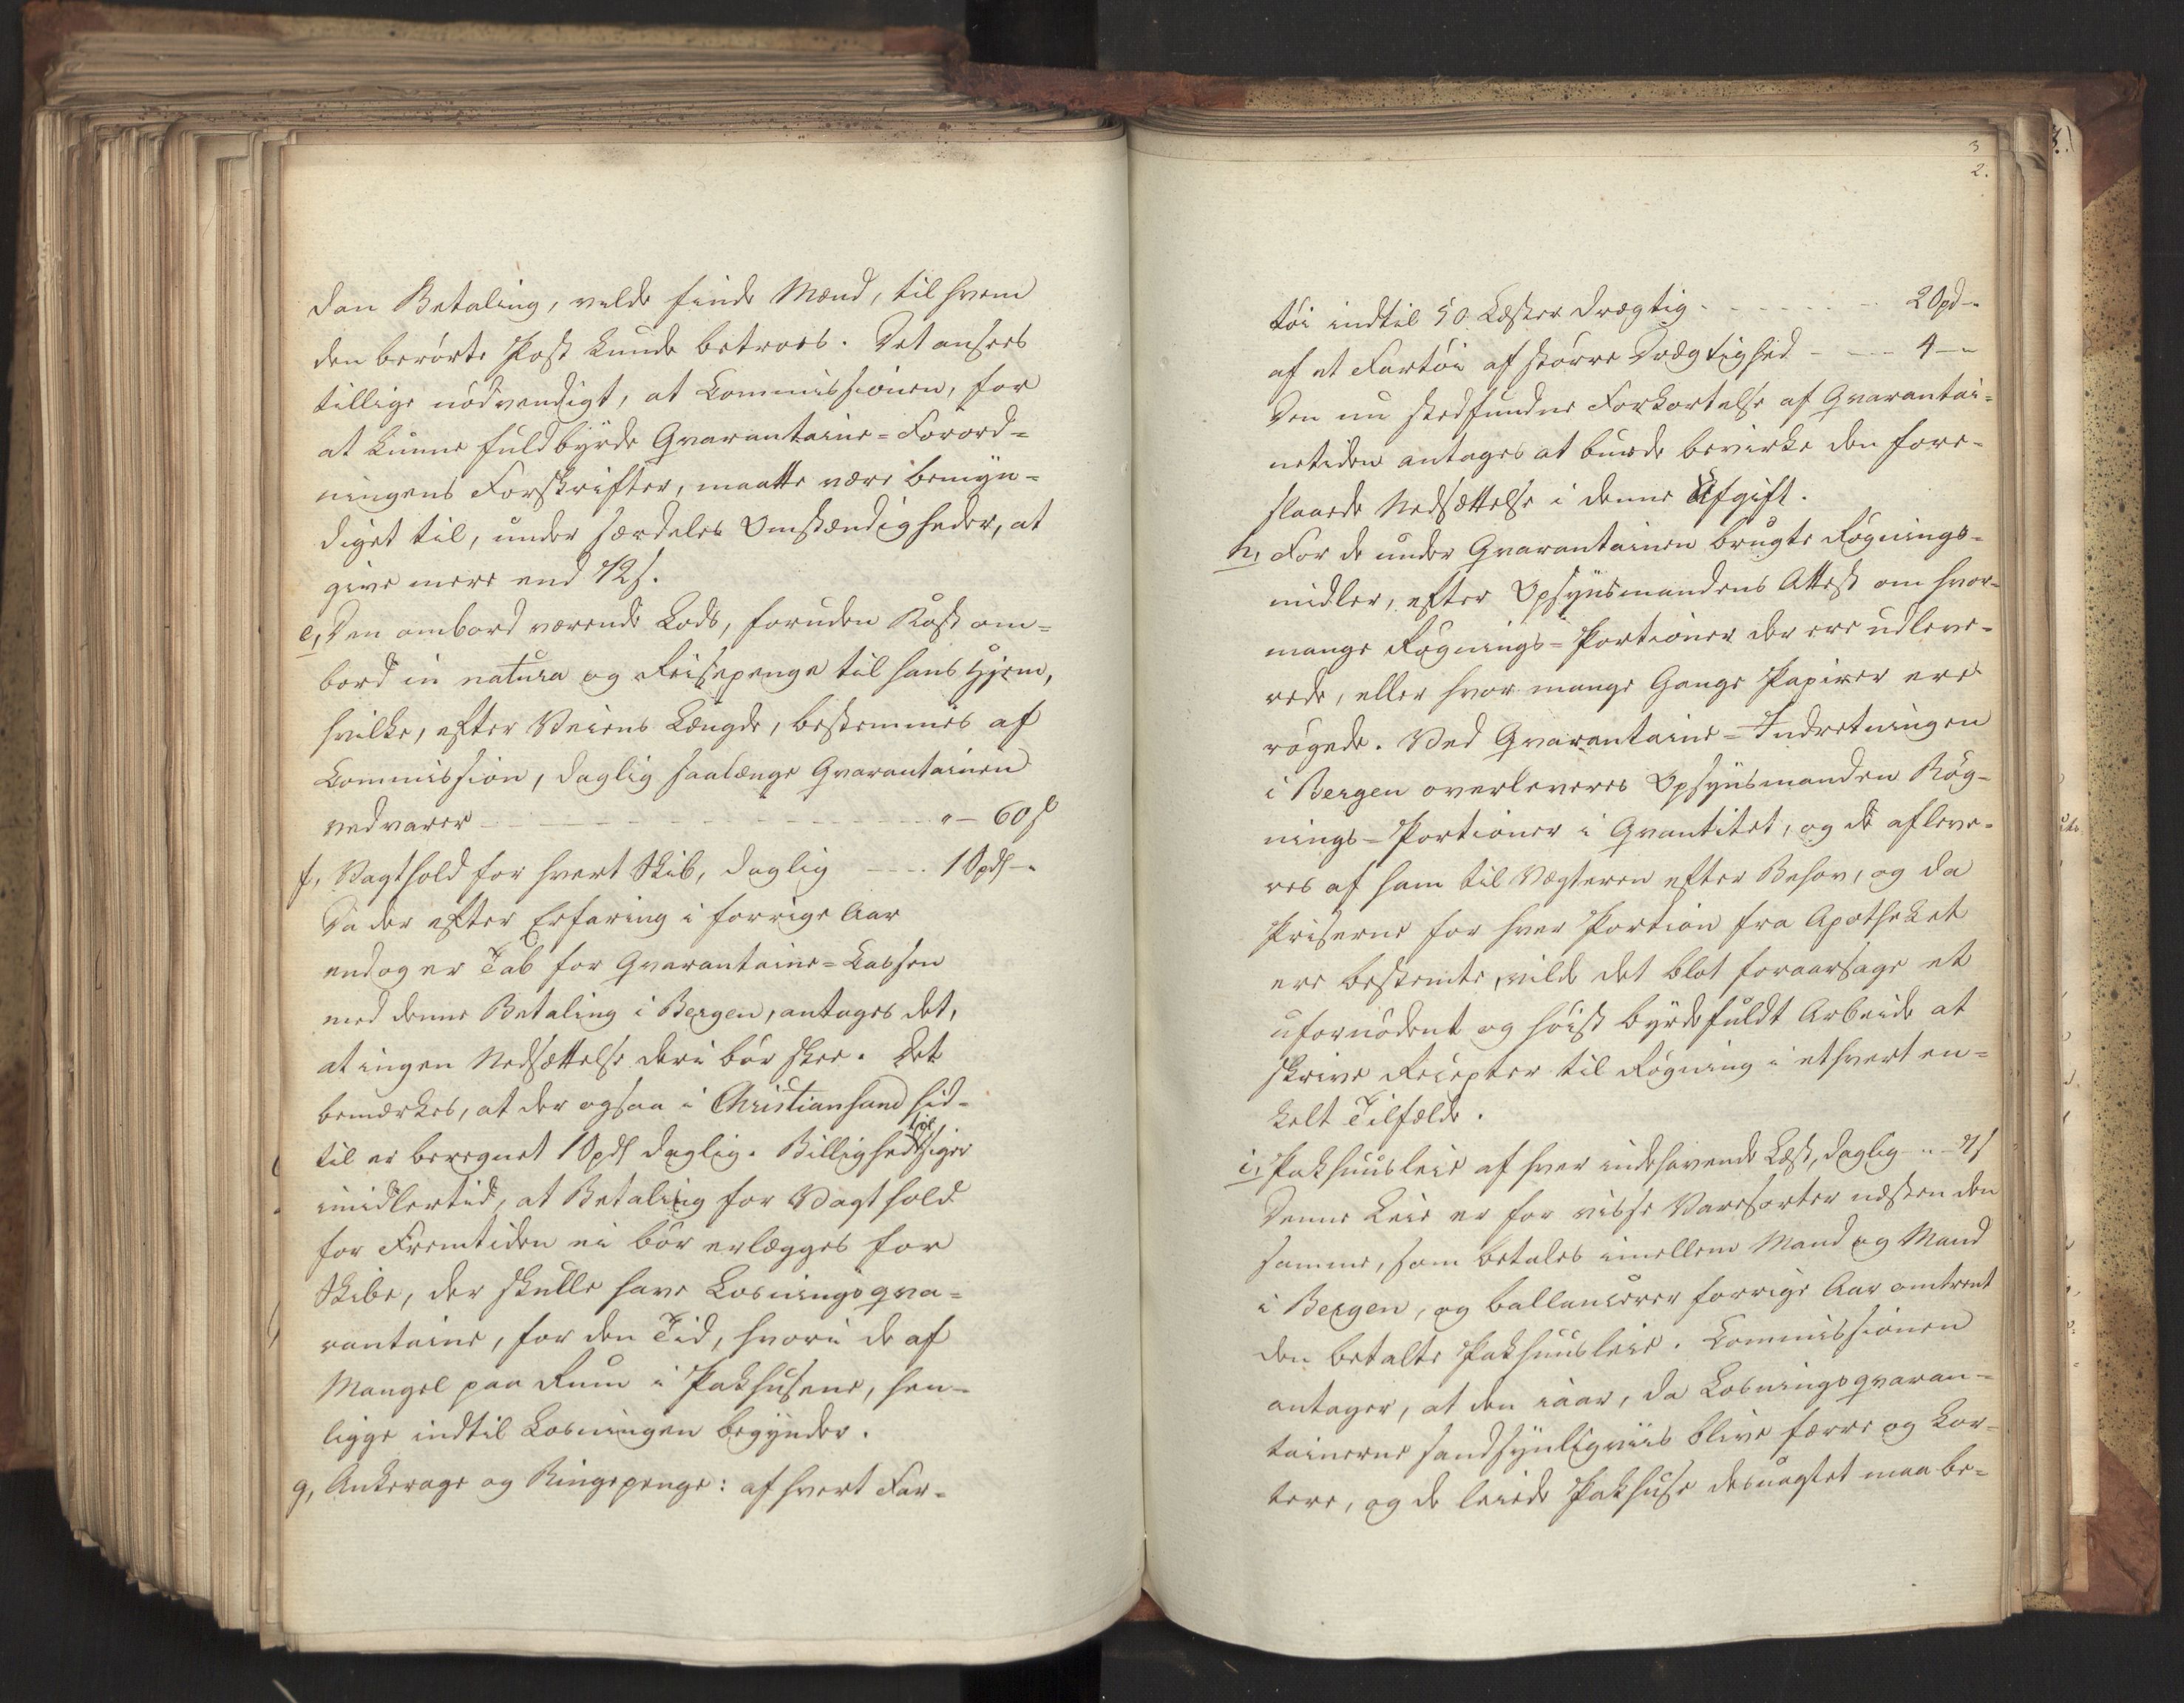 dan Betaling, vilde finde Mænd, til hvem
den berørte Post kunde betroes. Det ansees
tillige nödvendigt, at Commissionen, for
at kunne fuldbyrde Qvarantaine-Forord-
ningens Forskrifter, maatte være bemyn-
diget til, under særdeles Omstændigheder, at
give mere end 72 s.
e, Den ombord værende Lods, foruden Kost om-
bord in natura og Reisepenge til hans Hjem,
hvilke, efter Veiens Længde, bestemmes af
Commission, daglig saalænge Qvarantainen
vedvarer - - - - - - - - " - 60 s
f, Vagthold for hvert Skib, daglig - - - 1 Spd - "
Da der efter Erfaring i forrige Aar
endog er Tab for Qvarantaine-Cassen
med denne Betaling i Bergen, antages det,
at ingen Nedsættelse deri bör skee. Det
bemærkes, at der ogsaa i Christiansand hid-
til er beregnet 1 Spd daglig. Billighed tilsiger
imidlertid, at Betaling for Vagthold
for Fremtiden ei bör erlægges for
Skibe, der skulle have Losningsqva-
rantaine, for den Tid, hvori de af
Mangel paa Rum i Pakhusene, hen-
ligge indtil Losningen begynder.
g, Ankerage og Ringepenge: af hvert Far-
3
2.
töi indtil 50 Læster drægtig - - - - - 2 Spd - "
af et Fartöi af större Drægtighed - - - 4 - "
Den nu stedfundne Forkortelse af Qvarantai-
netiden antages at burde bevirke den fore-
slaaede Nedsættelse i denne Afgift.
h, For de under Qvarantainen brugte Rögnings-
midler, efter Opsynsmandens Attest om hvor-
mange Rögnings-Portioner der ere udleve-
rede, eller hvor mange Gange Papirer ere
rögede. Ved Qvarantaine-Indretningen
i Bergen overleveres Opsynsmanden Rög-
nings-Portioner i Qvantitet, og de afleve-
res af ham til Vægteren efter Behov, og da
Priserne for hver Portion fra Apotheket
ere bestemte, vilde det blot foraarsage et
ufornödent og höist byrdefuldt Arbeide at
skrive Recepter til Rögning i ethvert en-
kelt Tilfælde.
i, Pakhuusleie af hver indehavende Læst, daglig - " - 4 s
Denne Leie er for visse Varesorter næsten den
samme, som betales imellem Mand og Mand
i Bergen, og ballancerer forrige Aar omtrent
den betalte Pakhuusleie. Commissionen
antager, at den iaar, da Losningsqvaran-
tainerne sandsynligviis blive færre og kor-
tere, og de leiede Pakhuse desuagtet maa be-